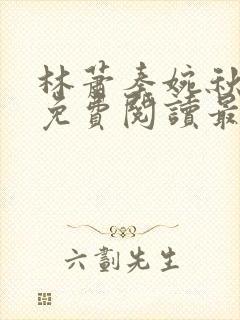 林蕭秦婉秋
免費閱讀最
六劃先生